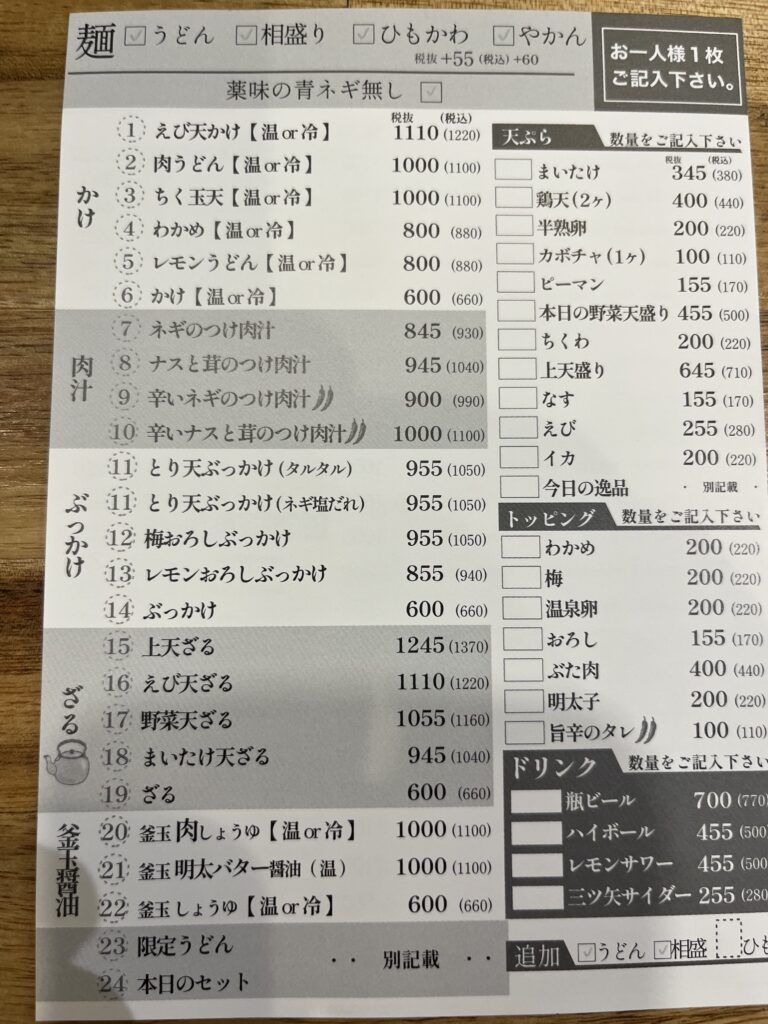 麺 うどん 相盛り ひもかわ やかん
税抜+55(税込)+60
薬味の青ネギ無し
お一人様1枚
ご記入下さい。
かけ
税抜 (税込)
1 えび天かけ【温or冷】 1110 (1220)
2 肉うどん【温or冷】 1000 (1100)
3 ちく玉天【温or冷】 1000 (1100)
4 わかめ【温or冷】 800 (880)
5 レモンうどん【温or冷】 800 (880)
6 かけ【温or冷】 600 (660)
肉汁
7 ネギのつけ肉汁 845 (930)
8 ナスと茸のつけ肉汁 945 (1040)
9 辛いネギのつけ肉汁 900 (990)
10 辛いナスと茸のつけ肉汁 1000 (1100)
ぶっかけ
11 とり天ぶっかけ(タルタル) 955 (1050)
11 とり天ぶっかけ(ネギ塩だれ) 955 (1050)
12 梅おろしぶっかけ 955 (1050)
13 レモンおろしぶっかけ 855 (940)
14 ぶっかけ 600 (660)
ざる
15 上天ざる 1245 (1370)
16 えび天ざる 1110 (1220)
17 野菜天ざる 1055 (1160)
18 まいたけ天ざる 945 (1040)
19 ざる 600 (660)
釜玉醤油
20 釜玉肉しょうゆ【温or冷】 1000 (1100)
21 釜玉明太バター醤油(温) 1000 (1100)
22 釜玉しょうゆ【温or冷】 600 (660)
23 限定うどん
・・ 別記載 ・・
24 本日のセット
天ぷら 数量をご記入下さい
税抜 (税込)
まいたけ 345 (380)
鶏天(2ヶ) 400 (440)
半熟卵 200 (220)
カボチャ(1ヶ) 100 (110)
ピーマン 155 (170)
本日の野菜天盛り 455 (500)
ちくわ 200 (220)
上天盛り 645 (710)
なす 155 (170)
えび 255 (280)
イカ 200 (220)
今日の逸品 ・ 別記載 ・
トッピング 数量をご記入下さい
わかめ 200 (220)
梅 200 (220)
温泉卵 200 (220)
おろし 155 (170)
ぶた肉 400 (440)
明太子 200 (220)
旨辛のタレ 100 (110)
ドリンク 数量をご記入下さい
瓶ビール 700 (770)
ハイボール 455 (500
レモンサワー 455 (500
三ツ矢サイダー 255 (280
追加 うどん 相盛 ひも